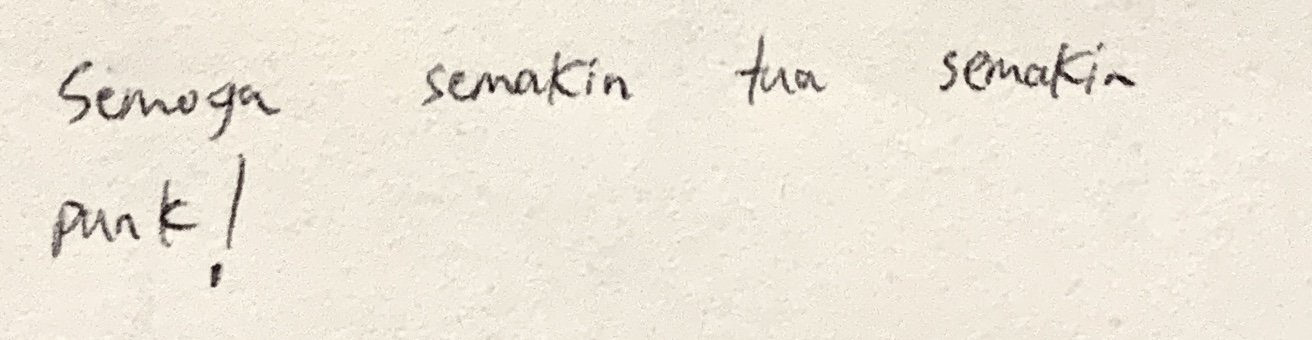 Semoga semakin tua semakin
punk!